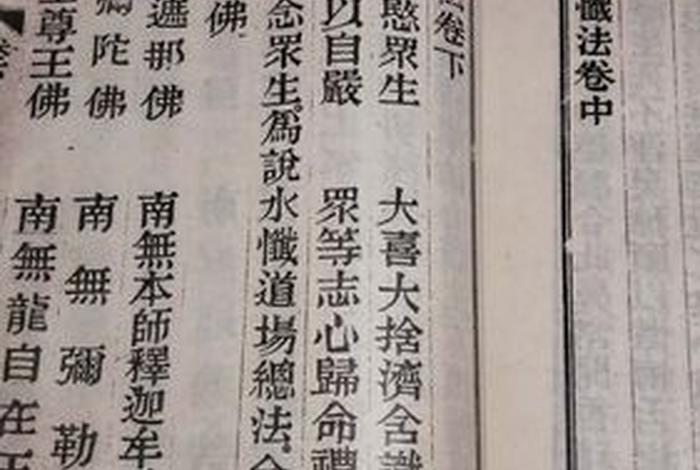 懺法卷中
卷下
愍眾生 大喜大捨濟含識
以自嚴 眾等志心歸命禮
念眾生。為說水懺道場總法。今
佛
遮那佛 南無本師釋迦牟
彌陀佛 南無彌勒
尊王佛 南無龍自在王